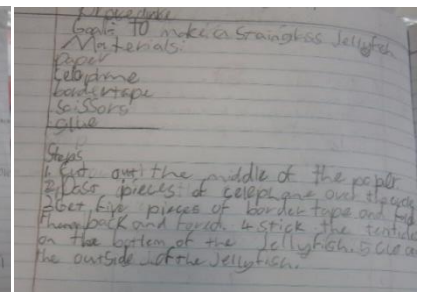 Procedure
Goal: To make a Stainglass Jellyfish
Materials:
Paper
bordertape
Scissors
Glue
Steps
1. Cut out the middle of the paper
2. pass pieces of telephane over the
3 Get five pieces of border tape and fold
them back and fored. 4 stick the tenticle
on the bottem of the Jellyfish. 5
the outside of the Jellyfish.